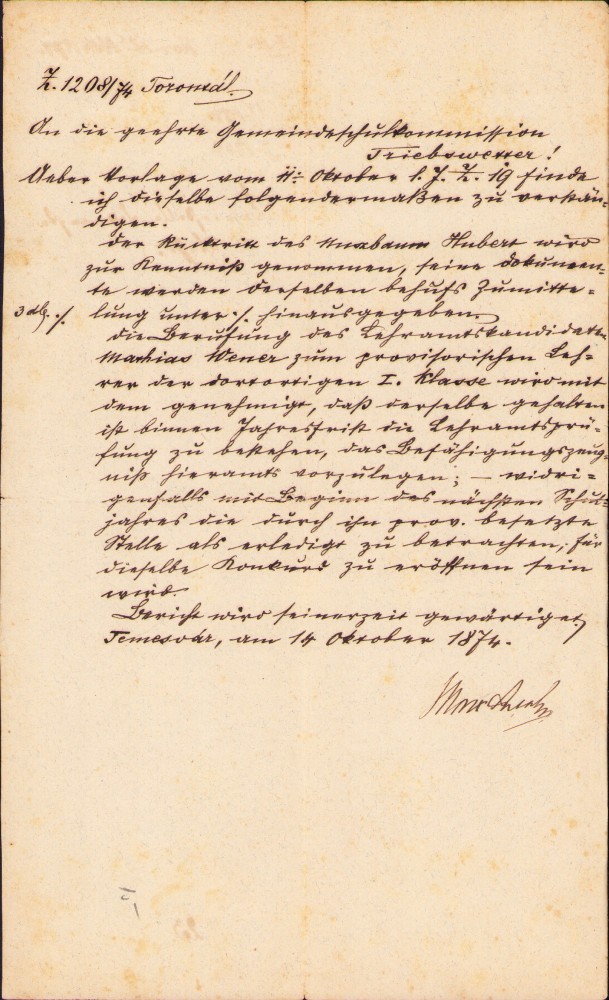 Z. 1208/74 Torontál.
An die geehrte Gemeindeschulkommission
Triebswetter!
Ueber Vorlage vom 11. Oktober l. J. Z. 19 finde
ich dieselbe folgendermaßen zu verstän-
digen.
Der Rücktritt des Hubert wird
zur Kenntniß genommen, seine Dokumen-
te werden derselben behufs Zumitte-
3 dlg. ./. lung unter ./. hinausgegeben.
Die Berufung des Lehramtskandidaten
Mathias Wener zum provisorischen Leh-
rer der dortortigen I. Klasse wird mit
dem genehmigt, daß derselbe gehalten
ist binnen Jahresfrist die Lehramtsprü-
fung zu bestehen, das Befähigungszeug-
niß hieramts vorzulegen; – widri-
genfalls mit Beginn des nächsten Schul-
jahres die durch ihn prov. besetzte
Stelle als erledigt zu betrachten, für
dieselbe Konkurs zu eröffnen sein
wird.
Bericht wird seinerzeit gewärtiget.
Temesvár, am 14 Oktober 1874.